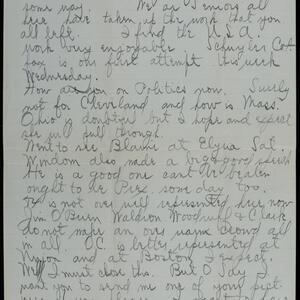 some way. We are Seniors all
here have taken up the work that you
all left. I find the U.S.A.
work very enjoyable Schuyler Col-
fax is our first attempt this week
Wednesday.
How are you on Politics now. Surely
not for Cleveland, and how is Mass.
Ohio is doubtful but I hope and expect
she will pull through.
Went to see Blaine at Elyria Sat.
Windom also made a big good speech
He is a good one can't be beaten
ought to be Prex some day too.
is not over well represented here now
Jim O'Brien Waldron Woodruff & Clark
do not make an over warm crowd all
in all. O.C. is better represented at
Union and at Boston I expect.
Well I must close this. But O Say I
want you to send me one of your pict-